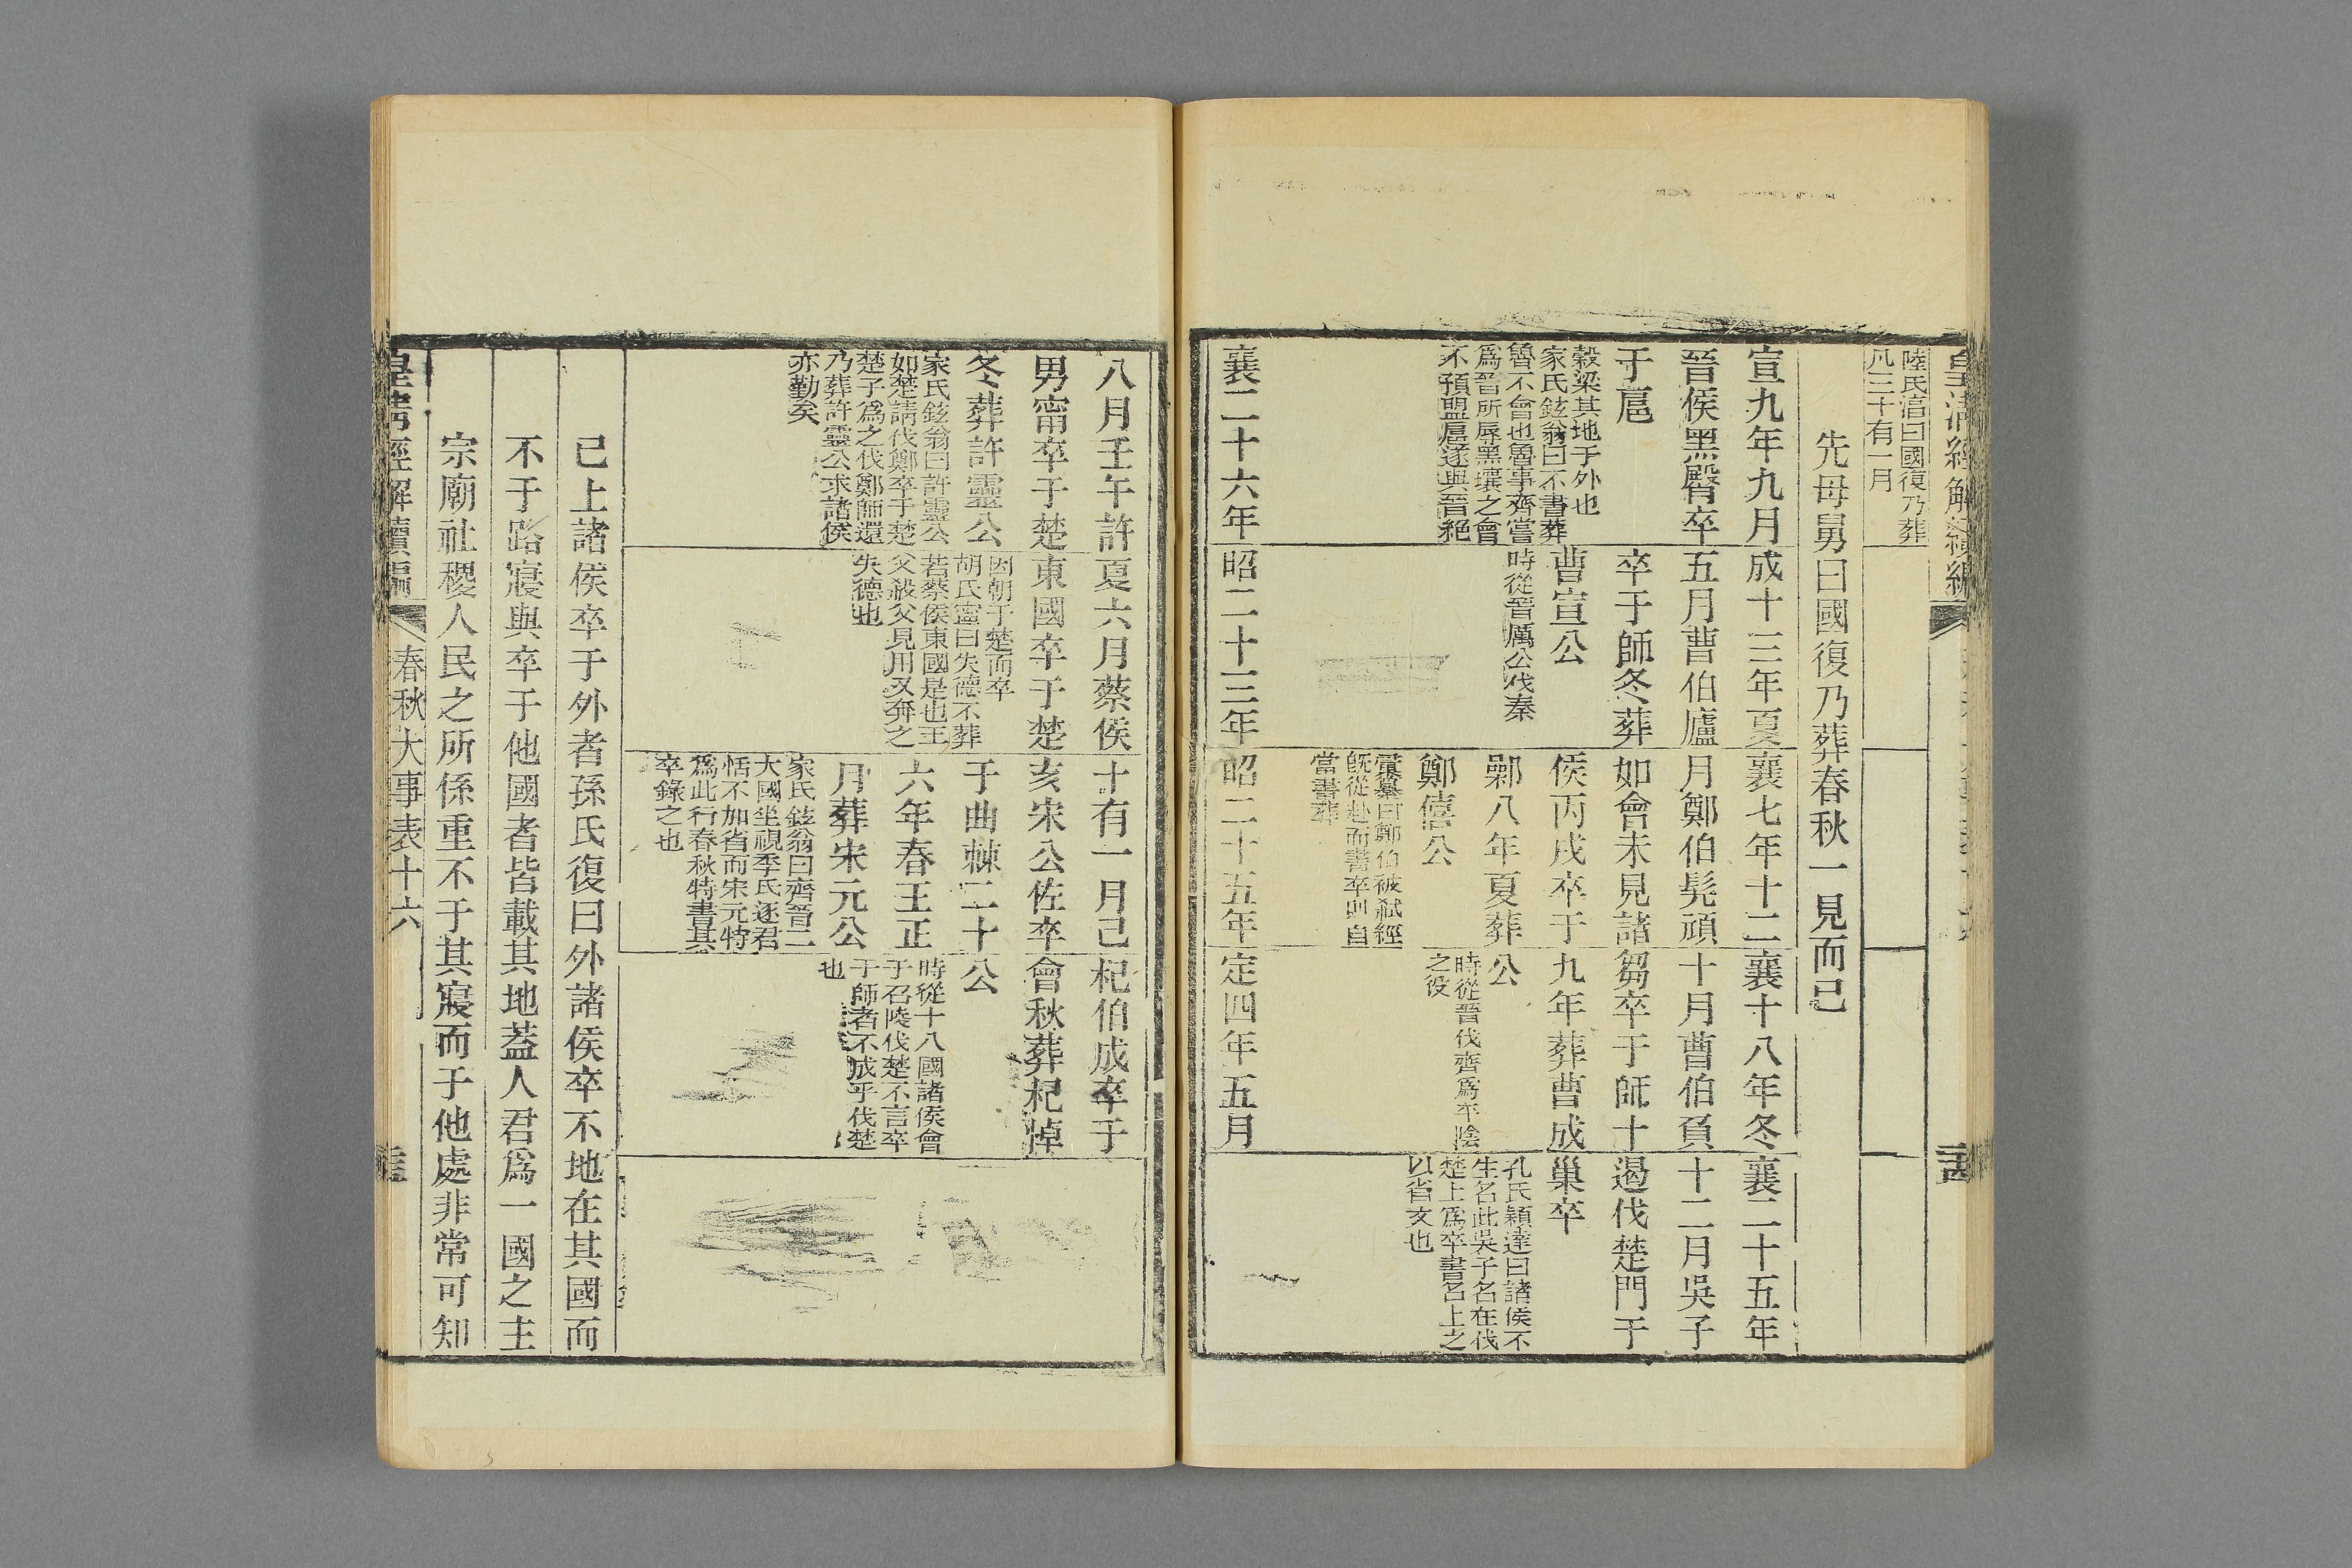 皇清經解續編
陸氏淳曰國復乃葬
凡三十有一月
先母舅曰國復乃葬春秋一見而已
宣九年九月
晉侯黑臀卒
于扈
穀梁其地于外也
家氏鉉翁曰不書葬
魯不會也魯事齊當
爲晉所辱黑壤之會
不預盟扈遂與晉絕
成十三年夏
五月曹伯廬
卒于師冬葬
曹宣公
時從晉厲公伐秦
襄七年十二
月鄭伯髡頑
如會未見諸
侯丙戌卒于
鄵八年夏葬
鄭僖公
曰鄭伯被弒經
旣從赴而書卒則自
當書葬
襄十八年冬
十月曹伯負
芻卒于師十
九年葬曹成
公
時從晉伐齊爲平陰
之役
襄二十五年
十二月吳子
遏伐楚門于
巢卒
孔氏穎達曰諸侯不
生名此吳子名在伐
楚上爲卒書名上之
以省文也
襄二十六年
八月壬午許
男甯卒于楚
冬葬許靈公
家氏鉉翁曰許靈公
如楚請伐鄭卒于楚
楚子爲之伐鄭師還
乃葬許靈公求諸侯
亦勤矣
昭二十三年
夏六月蔡侯
東國卒于楚
因朝于楚而卒
胡氏寧曰失德不葬
若蔡侯東國是也王
父殺父見用又奔之
失德也
昭二十五年
十有一月己
亥宋公佐卒
于曲棘二十
六年春王正
月葬宋元公
家氏鉉翁曰齊晉二
大國坐視季氏逐君
恬不加省而宋元特
爲此行春秋特書其
卒錄之也
定四年五月
杞伯成卒于
會秋葬杞悼
公
時從十八國諸侯會
于召陵伐楚不言卒
于師者不成乎伐楚
也
已上諸侯卒于外者孫氏復曰外諸侯卒不地在其國而
不于路寢與卒于他國者皆載其地蓋人君爲一國之主
宗廟社稷人民之所係重不于其寢而于他處非常可知
皇清經解續編 春秋大事表十六